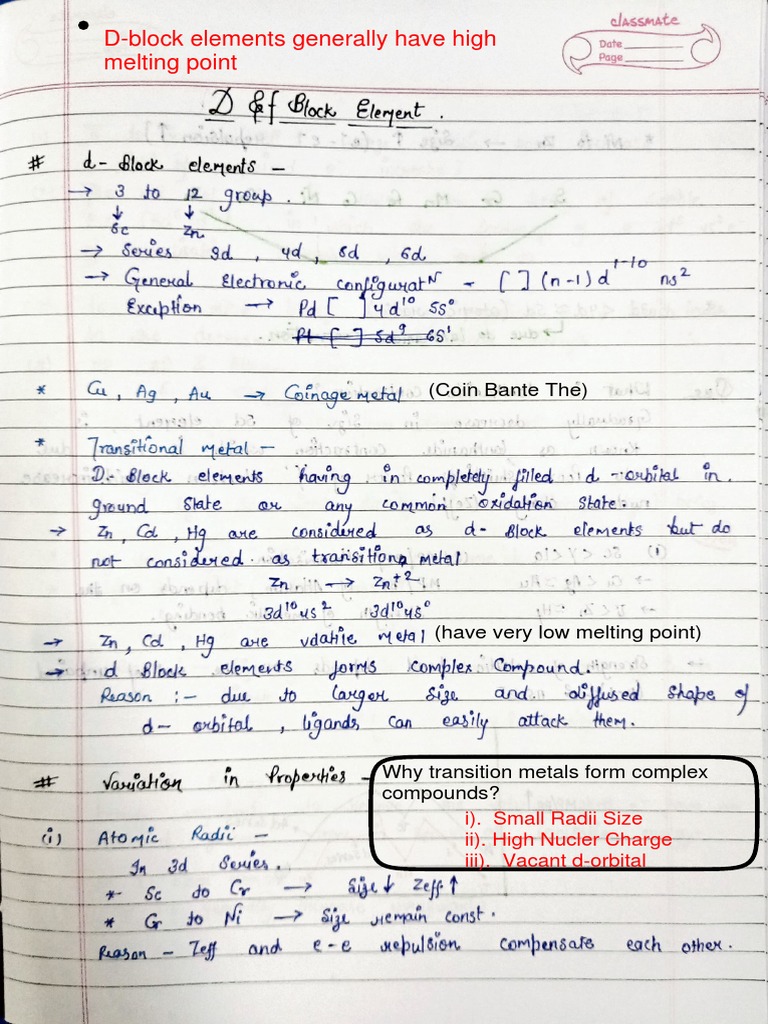 D-block elements generally have high
melting point
classmate
Date
Page
D & f Block Element.
# d-Block elements -
→ 3 to 12 group.
↓ ↓
Sc Zn
→ Series 3d, 4d, 5d, 6d
→ General Electronic configuratN - [ ] (n-1)d¹⁻¹⁰ ns²
Exception → Pd [ ] 4d¹⁰ 5s⁰
Pt [ ] 5d⁹ 6s¹
* Cu, Ag, Au → Coinage metal (Coin Bante The)
* Transitional metal -
D-Block elements having in completely filled d-orbital in
ground state or any common oxidation state.
→ Zn, Cd, Hg are considered as d-Block elements but do
not considered as transition metal
Zn → Zn⁺²
3d¹⁰4s² 3d¹⁰4s⁰
→ Zn, Cd, Hg are vdatile metal (have very low melting point)
→ d Block elements forms complex compound.
Reason :- due to larger size and diffused shape of
d-orbital, ligands can easily attack them.
# Variation in Properties -
Why transition metals form complex
compounds?
i). Small Radii Size
ii). High Nucler Charge
iii). Vacant d-orbital
(i) Atomic Radii -
In 3d series.
*- Sc to Cr → Size↓ Zeff↑
* Cr to Ni → Size remain const.
Reason - Zeff and e-e repulsion compensate each other.